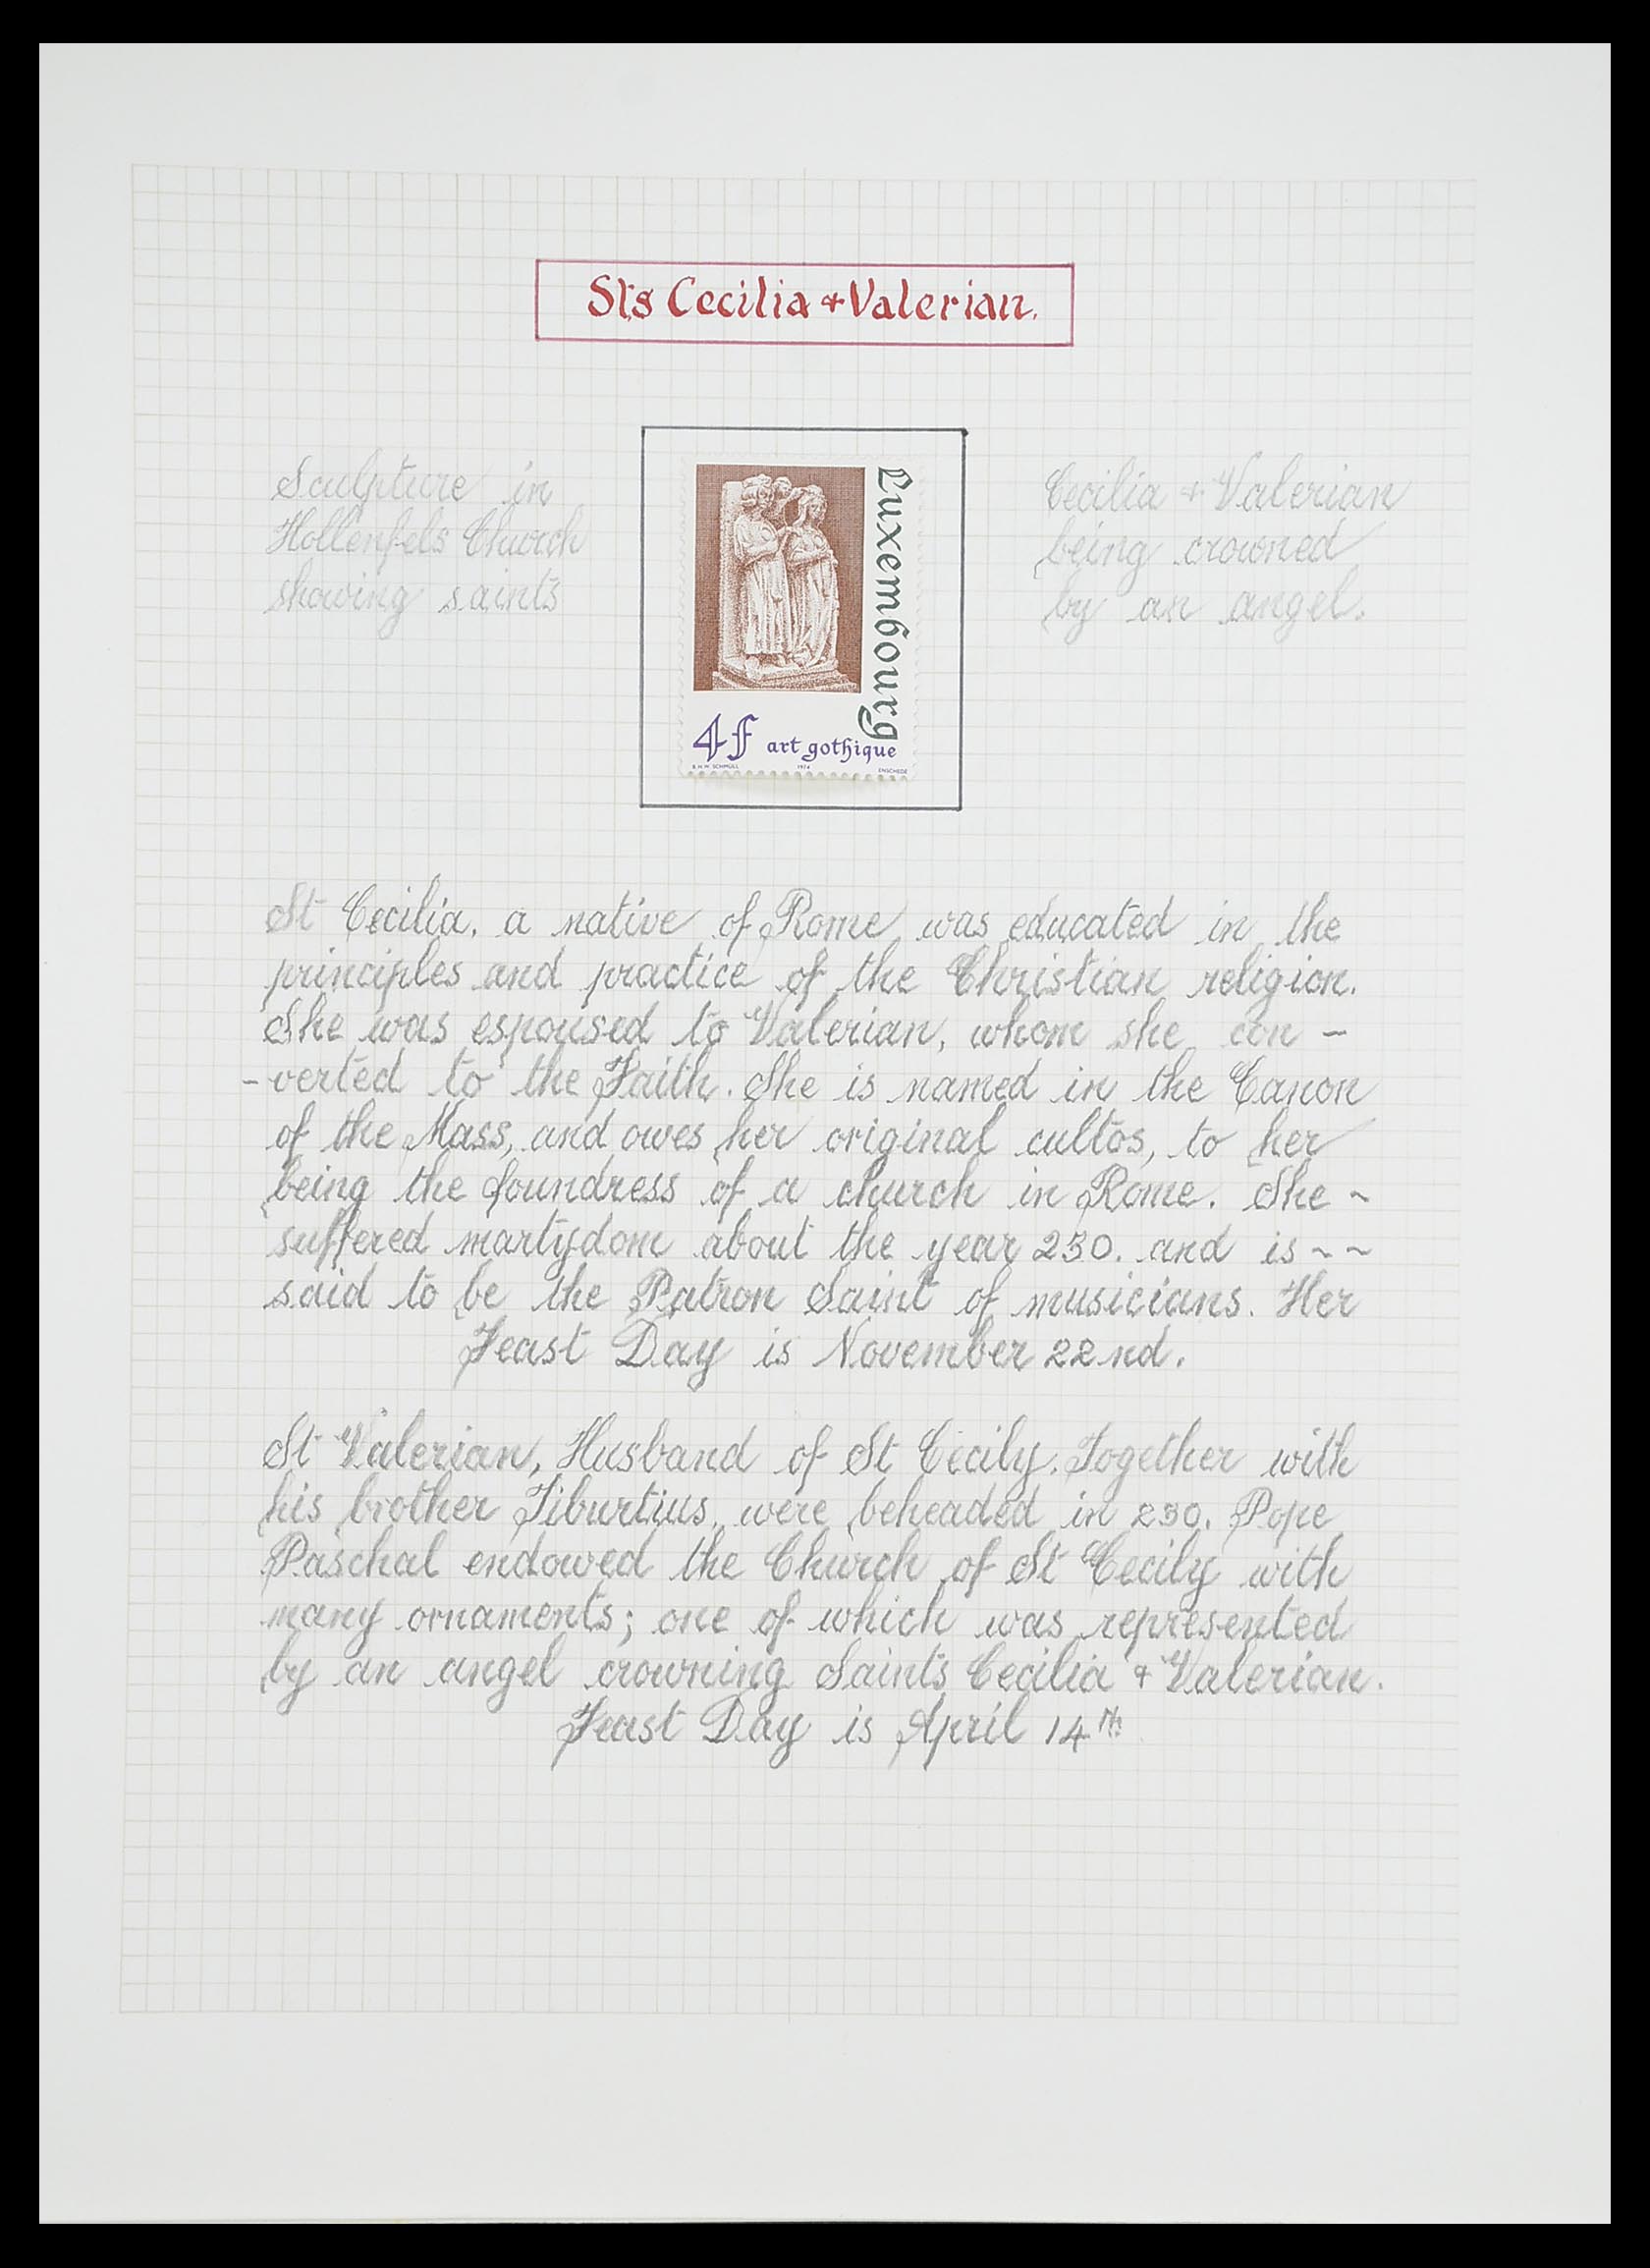 Sts Cecilia + Valerian.
Sculpture in
Hollenfels Church
showing saints
Luxembourg
4f art gothique
B.H.W. SCHMÜLL 1974 ENSCHEDE
Cecilia + Valerian
being crowned
by an angel.
St Cecilia, a native of Rome was educated in the
principles and practice of the Christian religion.
She was espoused to Valerian, whom she con -
-verted to the Faith. She is named in the Canon
of the Mass, and owes her original cultos, to her
being the foundress of a church in Rome. She ~
suffered martydom about the year 230. and is ~ ~
said to be the Patron Saint of musicians. Her
Feast Day is November 22nd.
St Valerian, Husband of St Cecily. Together with
his brother Tiburtius, were beheaded in 230. Pope
Paschal endowed the Church of St Cecily with
many ornaments; one of which was represented
by an angel crowning Saints Cecilia + Valerian.
Feast Day is April 14th